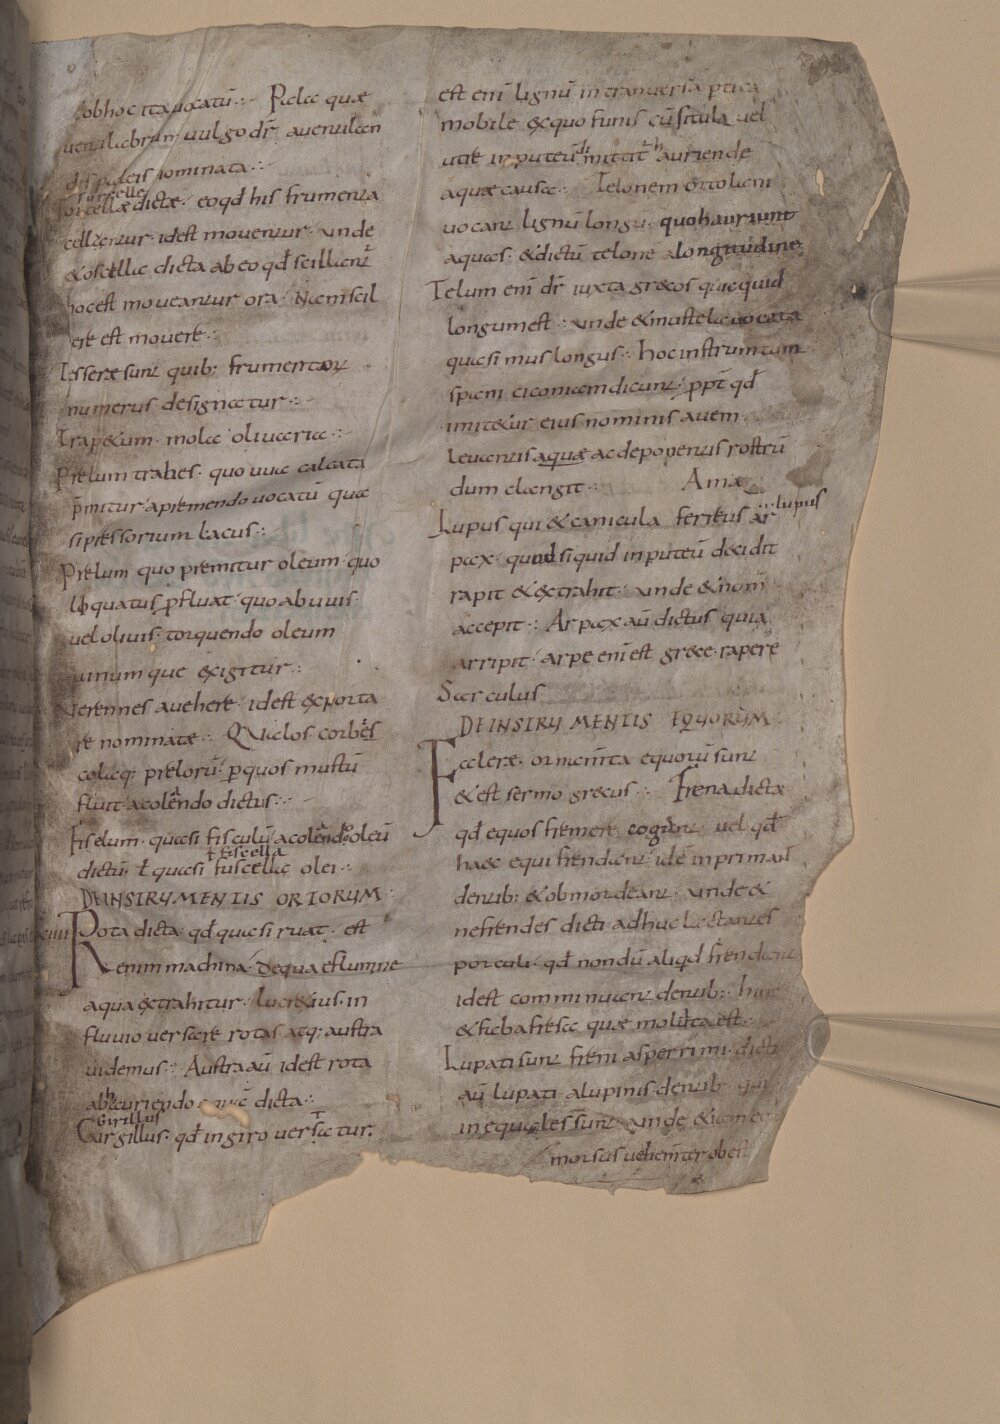 obhoc ita uocatū :· Palae quae
uentilabrum uulgo dr̄ a uentilan
dis paleis nominata :·
furcelle
Forcellae dictae · eo qđ his frumenta
cellentur · id est mouentur · unde
& oscillae dicta ab eo qđ scillant̄
hoc est moueantur ora · Nam scil
ere est mouere :·
Tesserae sunt quib; frumentorum
numerus designatur :·
Trap&um · mola oliuaria :·
Prelum trabes · quo uua calcata
p̄mitur a premendo uocatū quasi
si pressorium lacus :·
Prelum quo premitur oleum · quo
liquatus profluat · quo ab uuis
uel oliuis · torquendo oleum
uinum que exigitur :·
uerennes a uehere · id est exporta
re nominatae :· Qualos corbes
colaq; prelorū · p quos mustū
fluit · a colando dictus :·
Fiselum · quasi fisculū a colando oleū
ł fiscella
dictū · ł quasi fuscellae olei :·
DE INSTRUMENTIS ORTORUM
XIIII Rota dicta · qđ quasi ruat · est
enim machina · de qua e flumine
aqua extrahitur · lucr&ius · in
fluuio uersare rotas atq; austra
uidemus :· Austra aū id est rota
ab hauriendo aquā dicta :·
Girillus
Girgillus · qđ in giro uersatur ·
est enī lignū in transuersa ptica
mobile ex quo funis cū situla uel
utre in puteū dimittit hauriende
aquae causa :· Telonem ortolani
uocant lignū longū · quo hauriunt
aquas · & dictū telone a longitudine
Telum enī dr̄ iuxta grecos quicquid
longum est :· unde & mustela uocata
quasi mus longus :· hoc instrumtum
spani ciconiam dicunt · ppt̄ qđ
imit&ur eius nominis auem ·
leuantis aquae ac deponentis rostrū
dum clangit :· Ama
lupus
Lupus qui & canicula ferreus ar
pax · quod si quid in puteū decidit
rapit & extrahit · unde & nom̄
accepit :· Arpax aū dictus quia
arripit · arpe enī est grece rapere
Sarculus
DE INSTRUMENTIS EQUORUM
Faclerae · ornam̄ta equorū sunt
& est sermo grecus :· Frena dicta
qđ equos fremere cogant · uel qđ
haec equi frendant · idē inprimant
dentib; & obmordeant · unde &
nefrendes dicti adhuc lactantes
porculi · qđ nondū aliqd frendant
id est comminuant dentib; hinc
& faba fresa quae molita est :·
Lupati sunt freni asperrimi · dicti
aū lupati · a lupinis dentib · qui
inequales sunt · unde &
morsus uehem̄ter obest